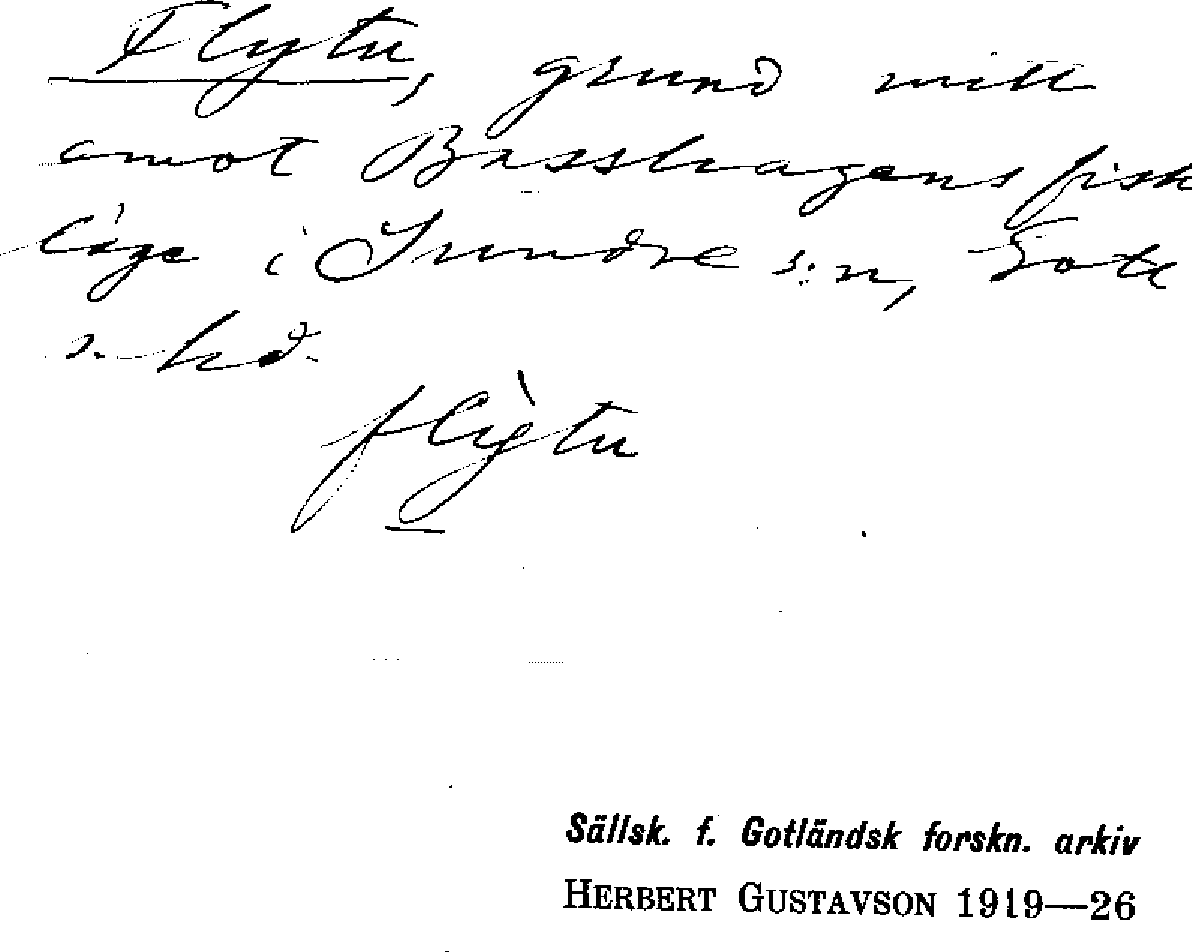 Flytu, grund mitt
emot Basshagens fisk
läge i Sundre s:n, Hote
s. hd.
flỳtu
Sällsk. f. Gotländsk forskn. arkiv
HERBERT GUSTAVSON 1919—26